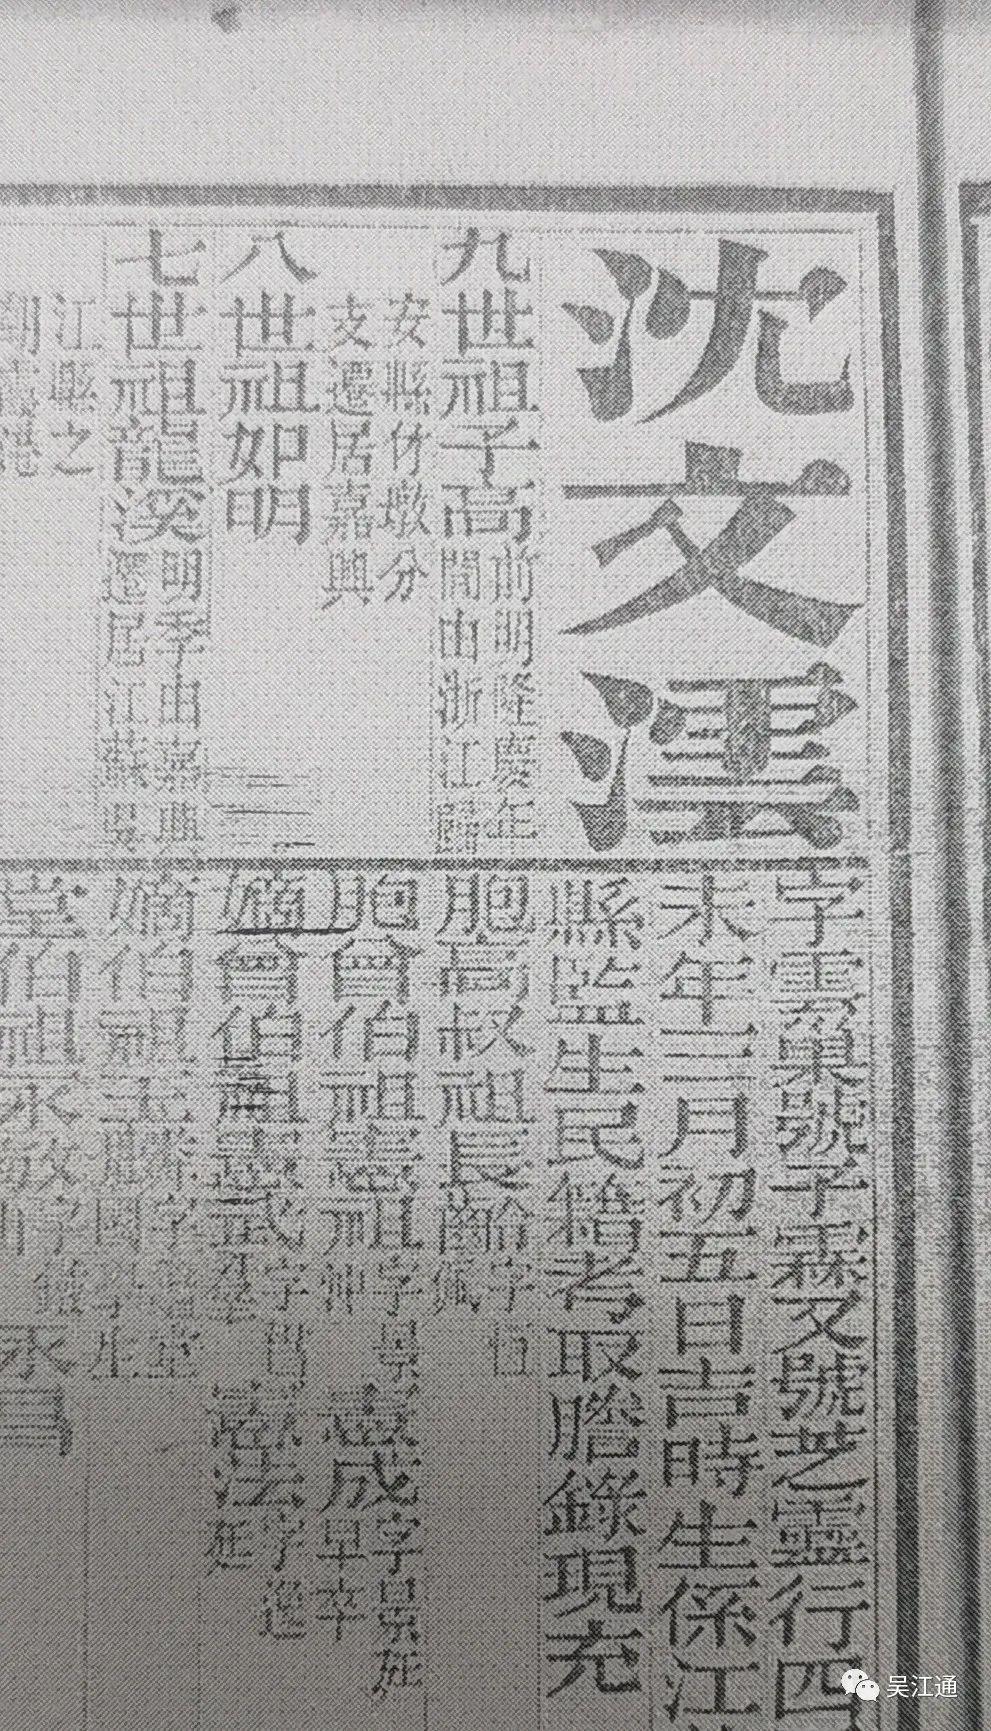 沈文澐
字雲巢號子霖又號芝靈行四
未年三月初五日吉時生係江
縣監生民籍考取謄錄現充
九世祖子高前明隆慶年間由浙江歸
安縣竹墩分支遷居嘉興
八世祖如明
七世祖龍溪明季由嘉興遷居江蘇吳
江縣之
胞高叔祖長齡字
胞曾伯祖憲祖字 憲成字景 早卒
嫡曾伯祖憲武字 憲法字
嫡伯祖
堂伯祖永 永昌
吴江通